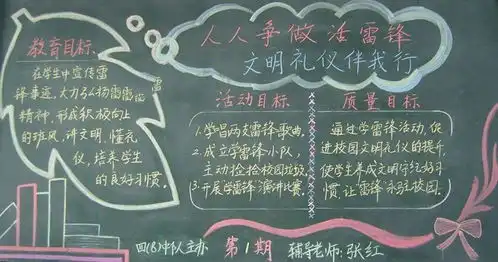 人人争做活雷锋
文明礼仪伴我行
教育目标
在学生中宣传雷
锋事迹,大力弘扬雷
锋精神,形成积极向上
的班风,讲文明、懂礼
仪,培养学生
的良好习惯。
活动目标
1.学唱两支雷锋歌曲。
2.成立学雷锋小队,
主动捡拾校园垃圾。
3.开展学雷锋演讲比赛。
质量目标
通过学雷锋活动,促
进校园文明礼仪的提升,
使学生养成文明守纪好习
惯,让雷锋永驻校园。
中队主办
第1期
辅导老师:张红